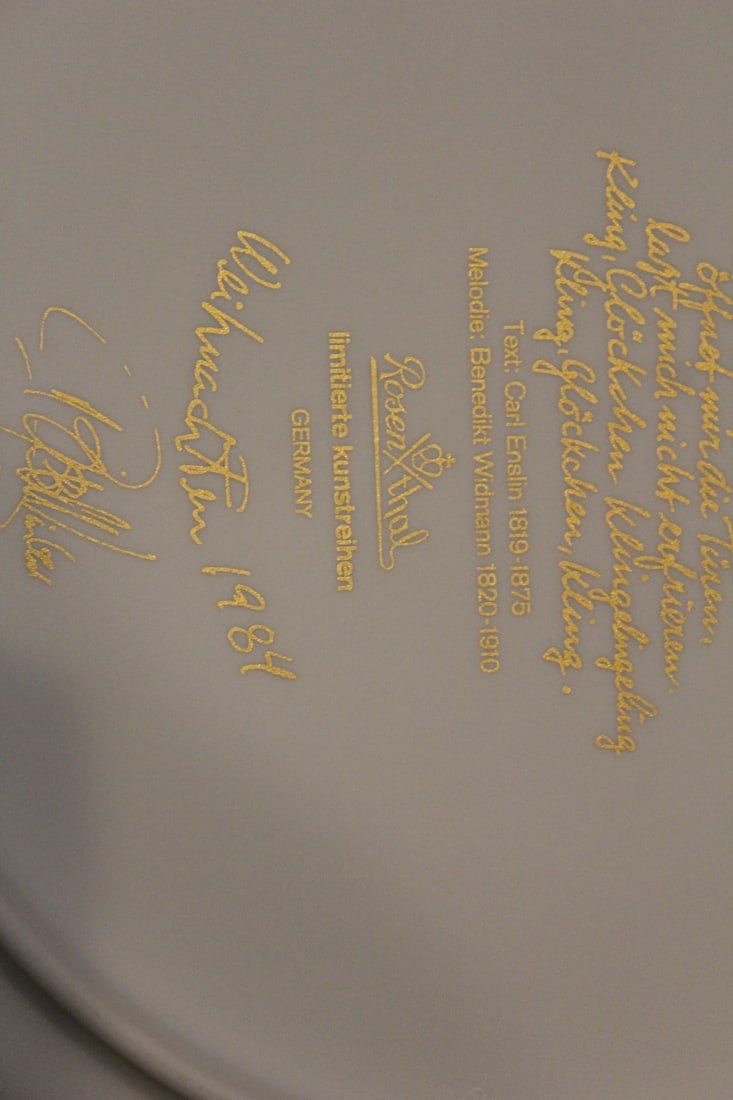 öffnet mir die Türen,
laßt mich nicht erfrieren.
Kling, Glöckchen klingelingeling
kling, Glöckchen, kling.
Text: Carl Enslin 1819-1875
Melodie: Benedikt Widmann 1820-1910
Rosenthal
limitierte kunstreihen
GERMANY
Weihnachten 1984